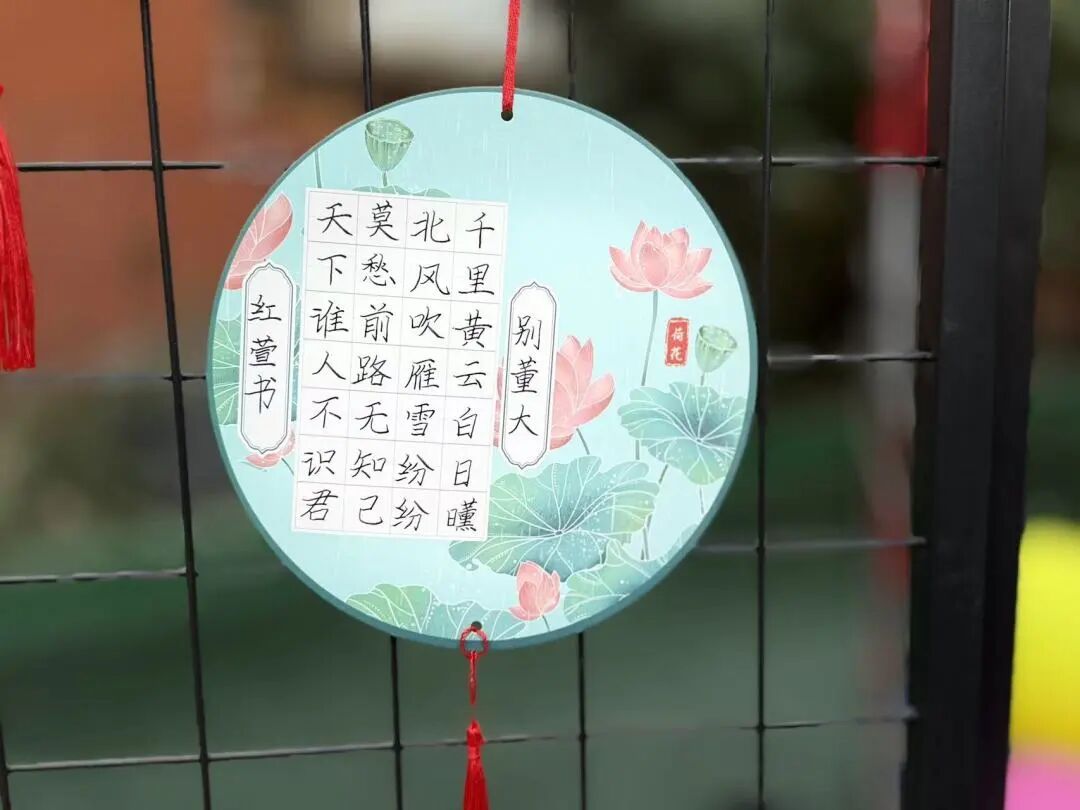 荷花
别董大
千里黄云白日曛
北风吹雁雪纷纷
莫愁前路无知己
天下谁人不识君
红萱书